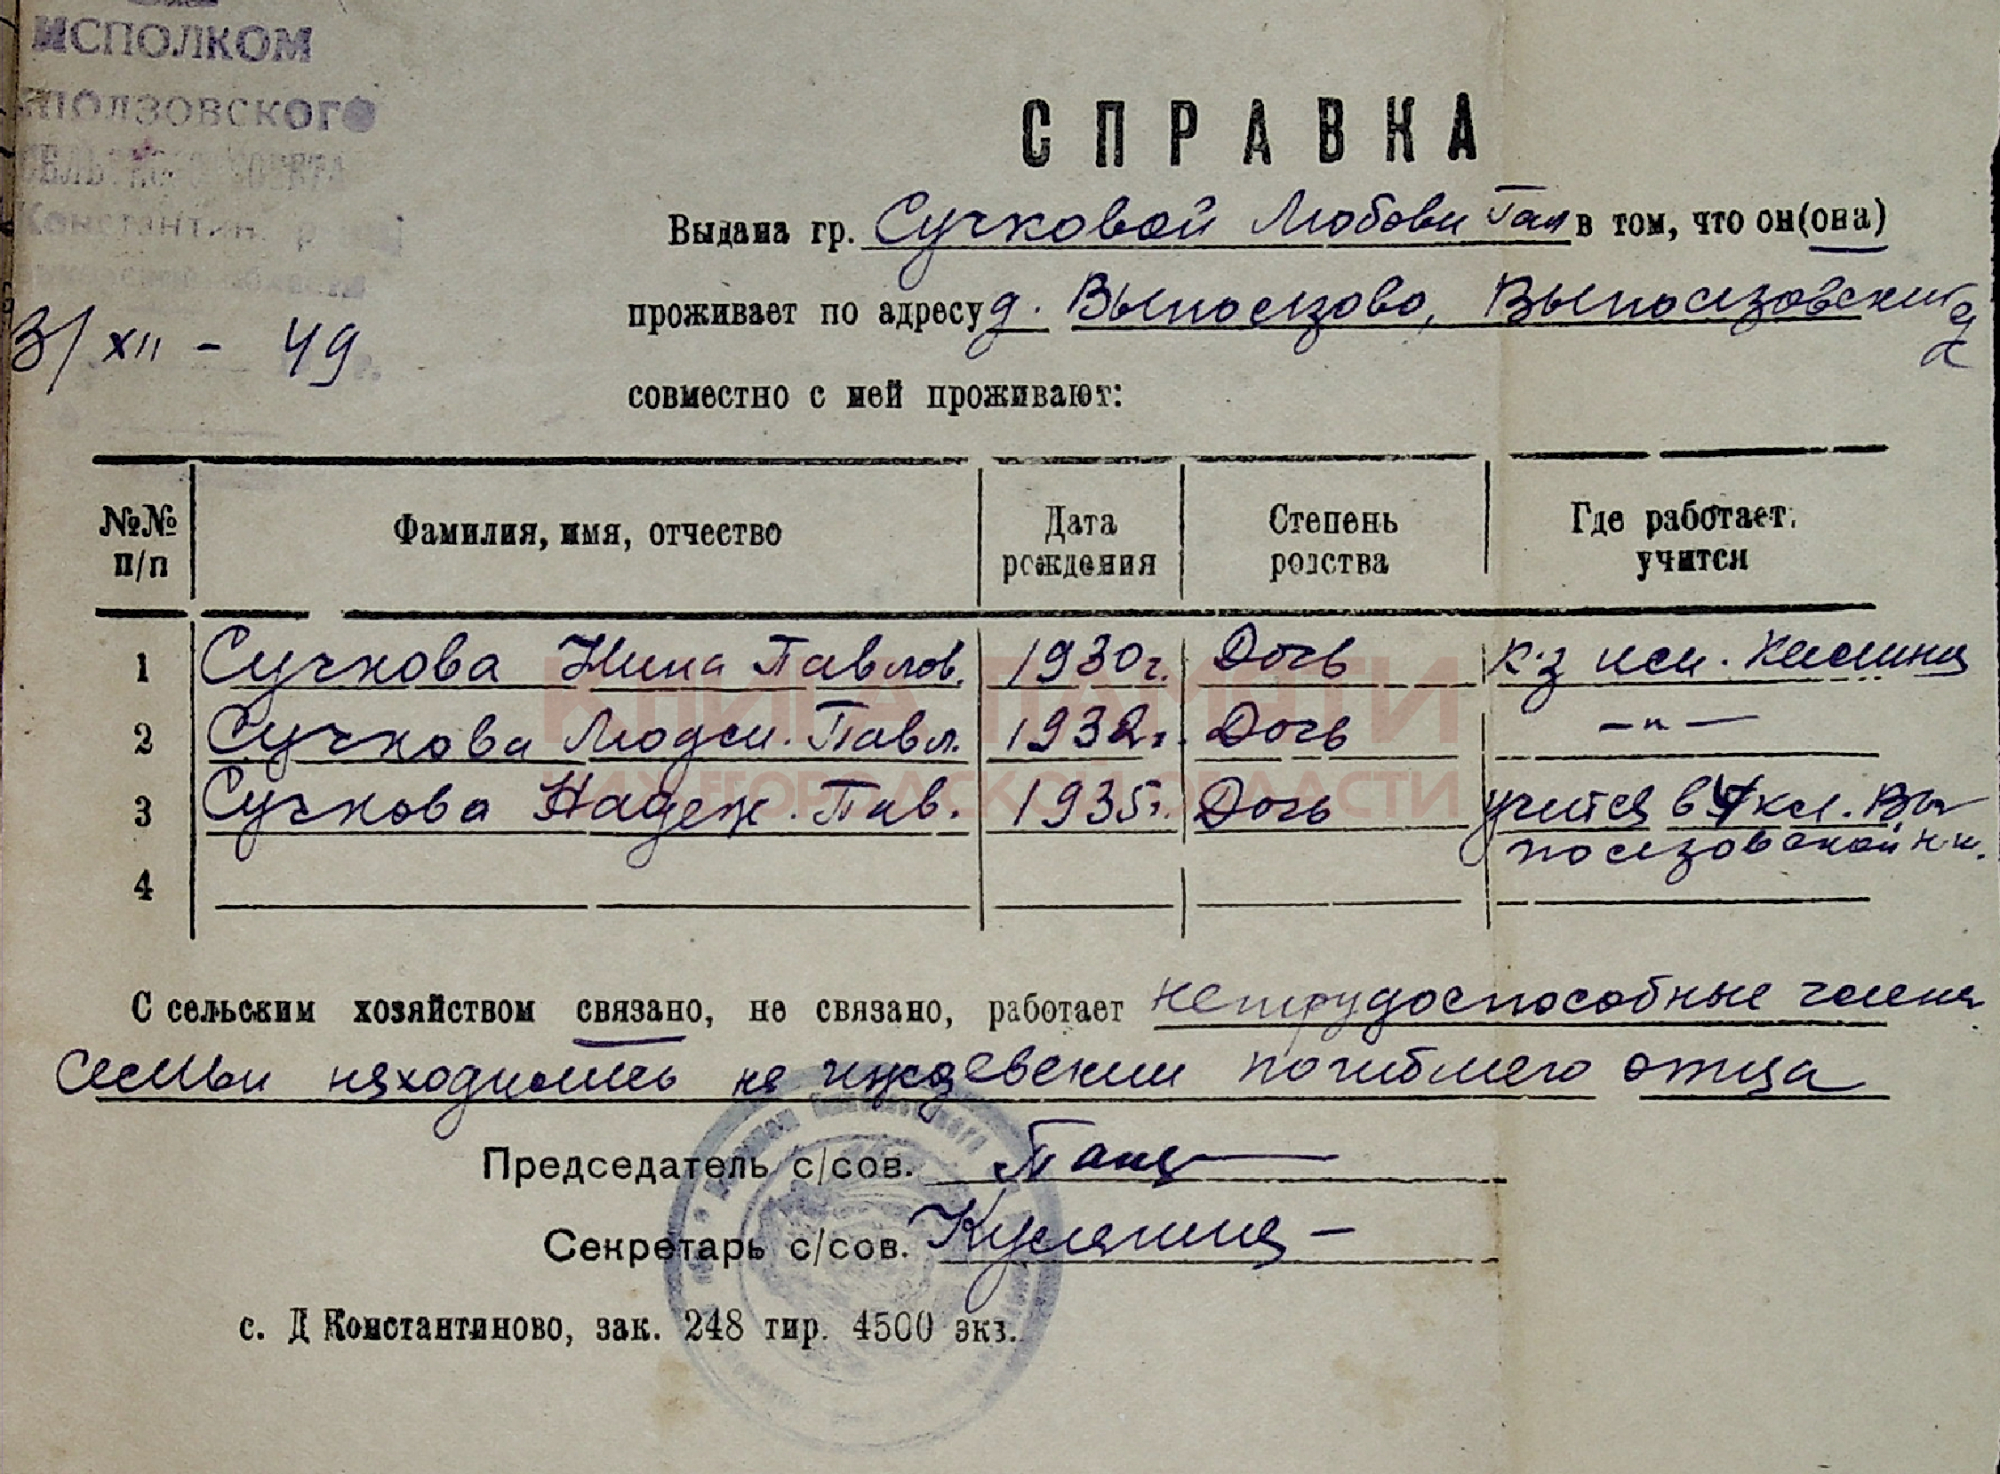 ИСПОЛКОМ
ПОЛЗОВСКОГО
СЕЛЬСКОГО СОВЕТА
Константин. р
области
3/XII - 49 г.
СПРАВКА
Выдана гр. Сучковой Любови в том, что он(она)
проживает по адресу д. Выползово, Выползовский
с/с
совместно с ней проживают:
№№ п/п Фамилия, имя, отчество Дата рождения Степень родства Где работает, учится
1 Сучкова Нина Павлов. 1930г. Дочь к-з им. Калинина
2 Сучкова Людм. Павл. 1932г. Дочь —"—
3 Сучкова Надеж. Пав. 1935г. Дочь учится в 4 кл. Вы
ползовской н.ш.
4
С сельским хозяйством связано, не связано, работает нетрудоспособные члены
семьи находились на иждевении погибшего отца
Председатель с/сов.
Секретарь с/сов.
с. Д Константиново, зак. 248 тир. 4500 экз.
КНИГА ПАМЯТИ
НИЖЕГОРОДСКОЙ ОБЛАСТИ